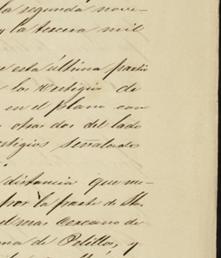 la segunda nove-
y la tercera mil
e esta última parte
la vestigio de
en el plano con
otras dos del lado
stigios señalados
distancia que me-
por la parte de
el mas cercano de
na de Pitillos, y